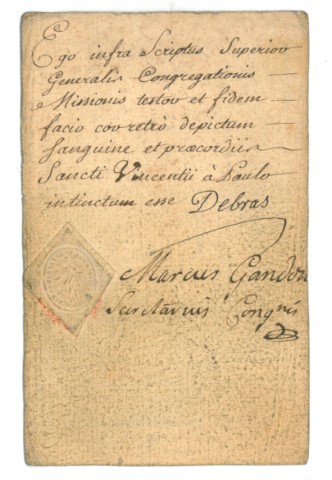 Ego infra Scriptus Superior
Generalis Congregationis
Missionis testor et fidem
facio cor retrò depictum
Sanguine et præcordiis
Sancti Vincentii à Paulo
intinctum esse Debras
Marcus Gandon
Secretarius Congnis